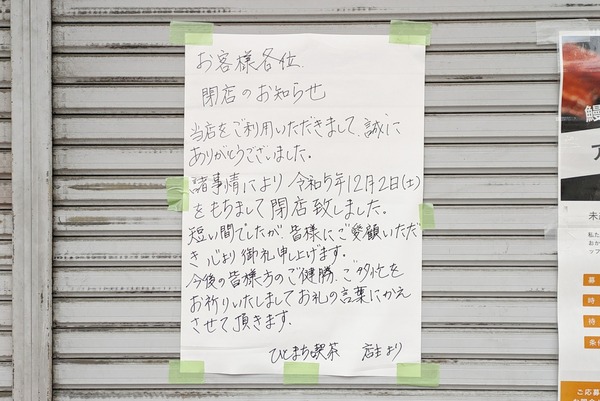 お客様各位
閉店のお知らせ
当店をご利用いただきまして、誠に
ありがとうございました。
諸事情により令和5年12月2日(土)
をもちまして閉店致しました。
短い間でしたが皆様にご愛顧いただ
き心より御礼申し上げます。
今後の皆様方のご健勝、ご多忙を
お祈りいたしましてお礼の言葉にかえ
させて頂きます。
ひとまち喫茶 店主より
鰻
ア
未
私た
おか
ップ
募
時
待
条件
ご応募